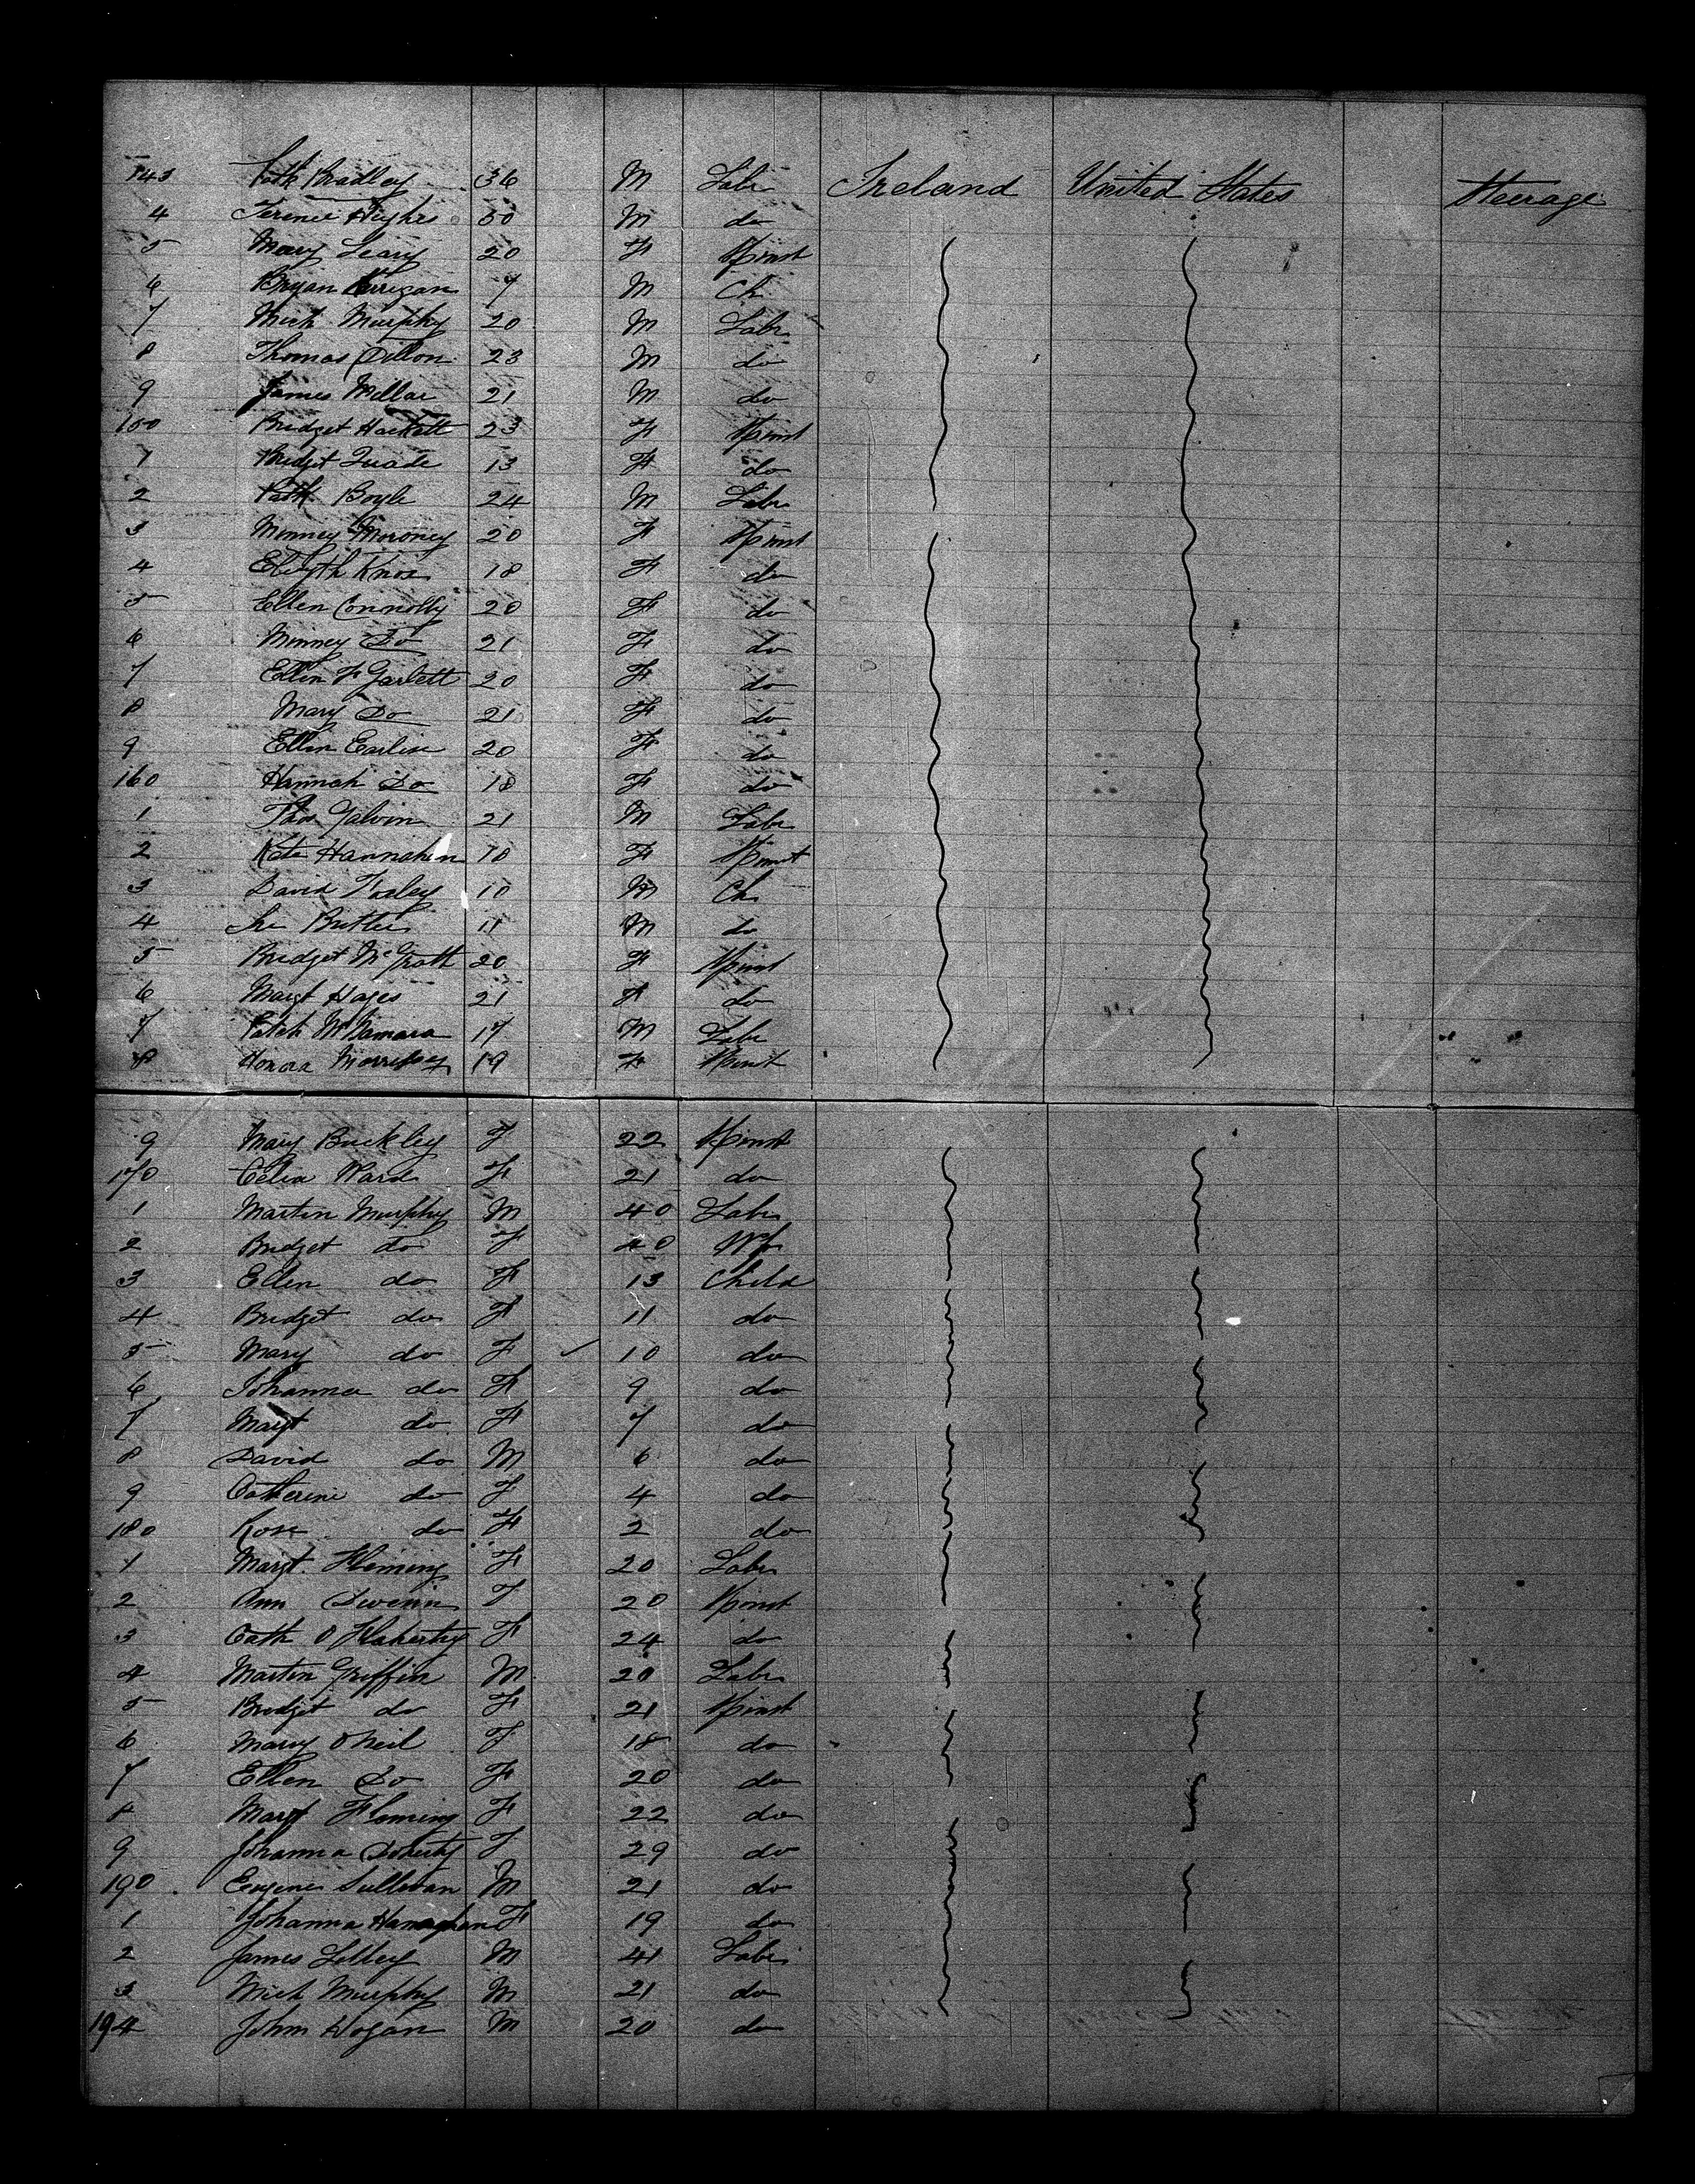 143 Patk Bradley 36 M Labr Ireland United States Steerage
4 Terence Hughes 30 M do
5 Mary Leary 20 F Spinst
6 Bryan Kerrigan 7 M Ch
7 Mich Murphy 20 M Labr
8 Thomas Dillon 23 M do
9 James Millar 21 M do
150 Bridget Hackett 23 F Spinst
1 Bridget Quade 13 F do
2 Patk Boyle 24 M Labr
3 Minney Moroney 20 F Spinst
4 Knox 18 F do
5 Ellen Connolly 20 F do
6 Minney Do 21 F do
7 Ellen 20 F do
8 Mary Do 21 F do
9 Ellen 20 F do
160 Hannah Do 18 F do
1 Galvin 21 M Labr
2 Kate Hannahan F Spinst
3 David 10 M Ch
4 Butler 11 M do
5 Bridget McGrath 20 F Spinst
6 Margt Hayes 21 F do
7 Patck McNamara 17 M Labr
8 Honora Morrissey 19 F Spinst
9 Mary Buckley F 22 Spinst
170 Celia Ward F 21 do
1 Martin Murphy M 40 Labr
2 Bridget do F 40 Wf
3 Ellen do F 13 Child
4 Bridget do F 11 do
5 Mary do F 10 do
6 Johanna do F 9 do
7 Margt do F 7 do
8 David do M 6 do
9 Catherine do F 4 do
180 Rose do F 2 do
1 Margt. Fleming F 20 Labr
2 Ann F 20 Spinst
3 Cath O Flaherty F 24 do
4 Martin Griffin M 20 Labr
5 Bridget do F 21 Spinst
6 Mary O'Neil F 18 do
7 Ellen Do F 20 do
8 Margt Fleming F 22 do
9 Johanna Doherty F 29 do
190 Eugene Sullivan M 21 do
1 Johanna Hanaghan F 19 do
2 James M 41 Labr
3 Mich Murphy M 21 do
194 John Hogan M 20 do